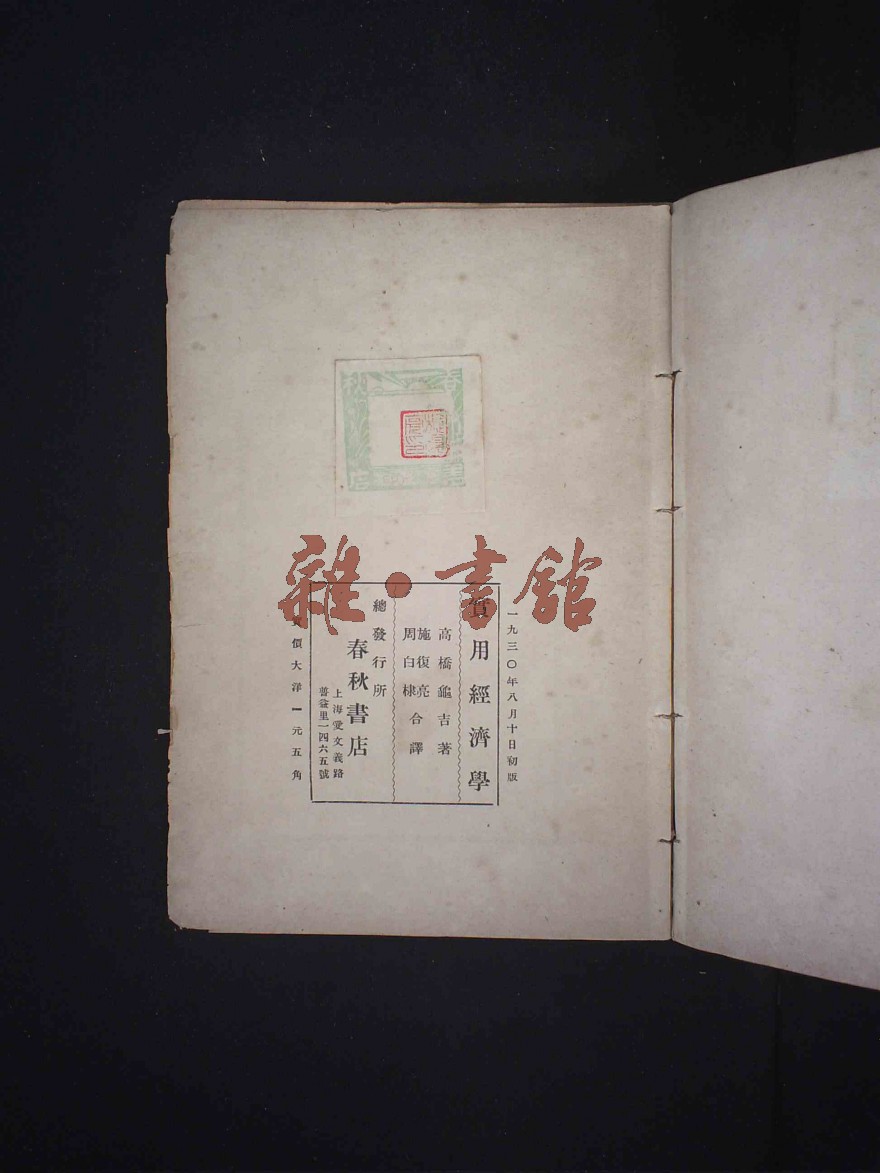 一九三〇年八月十日初版
實用經濟學
高橋龜吉著
施復亮
周白棣合譯
總發行所
春秋書店
上海愛文義路
普益里一四六五號
價大洋一元五角
雜·書館